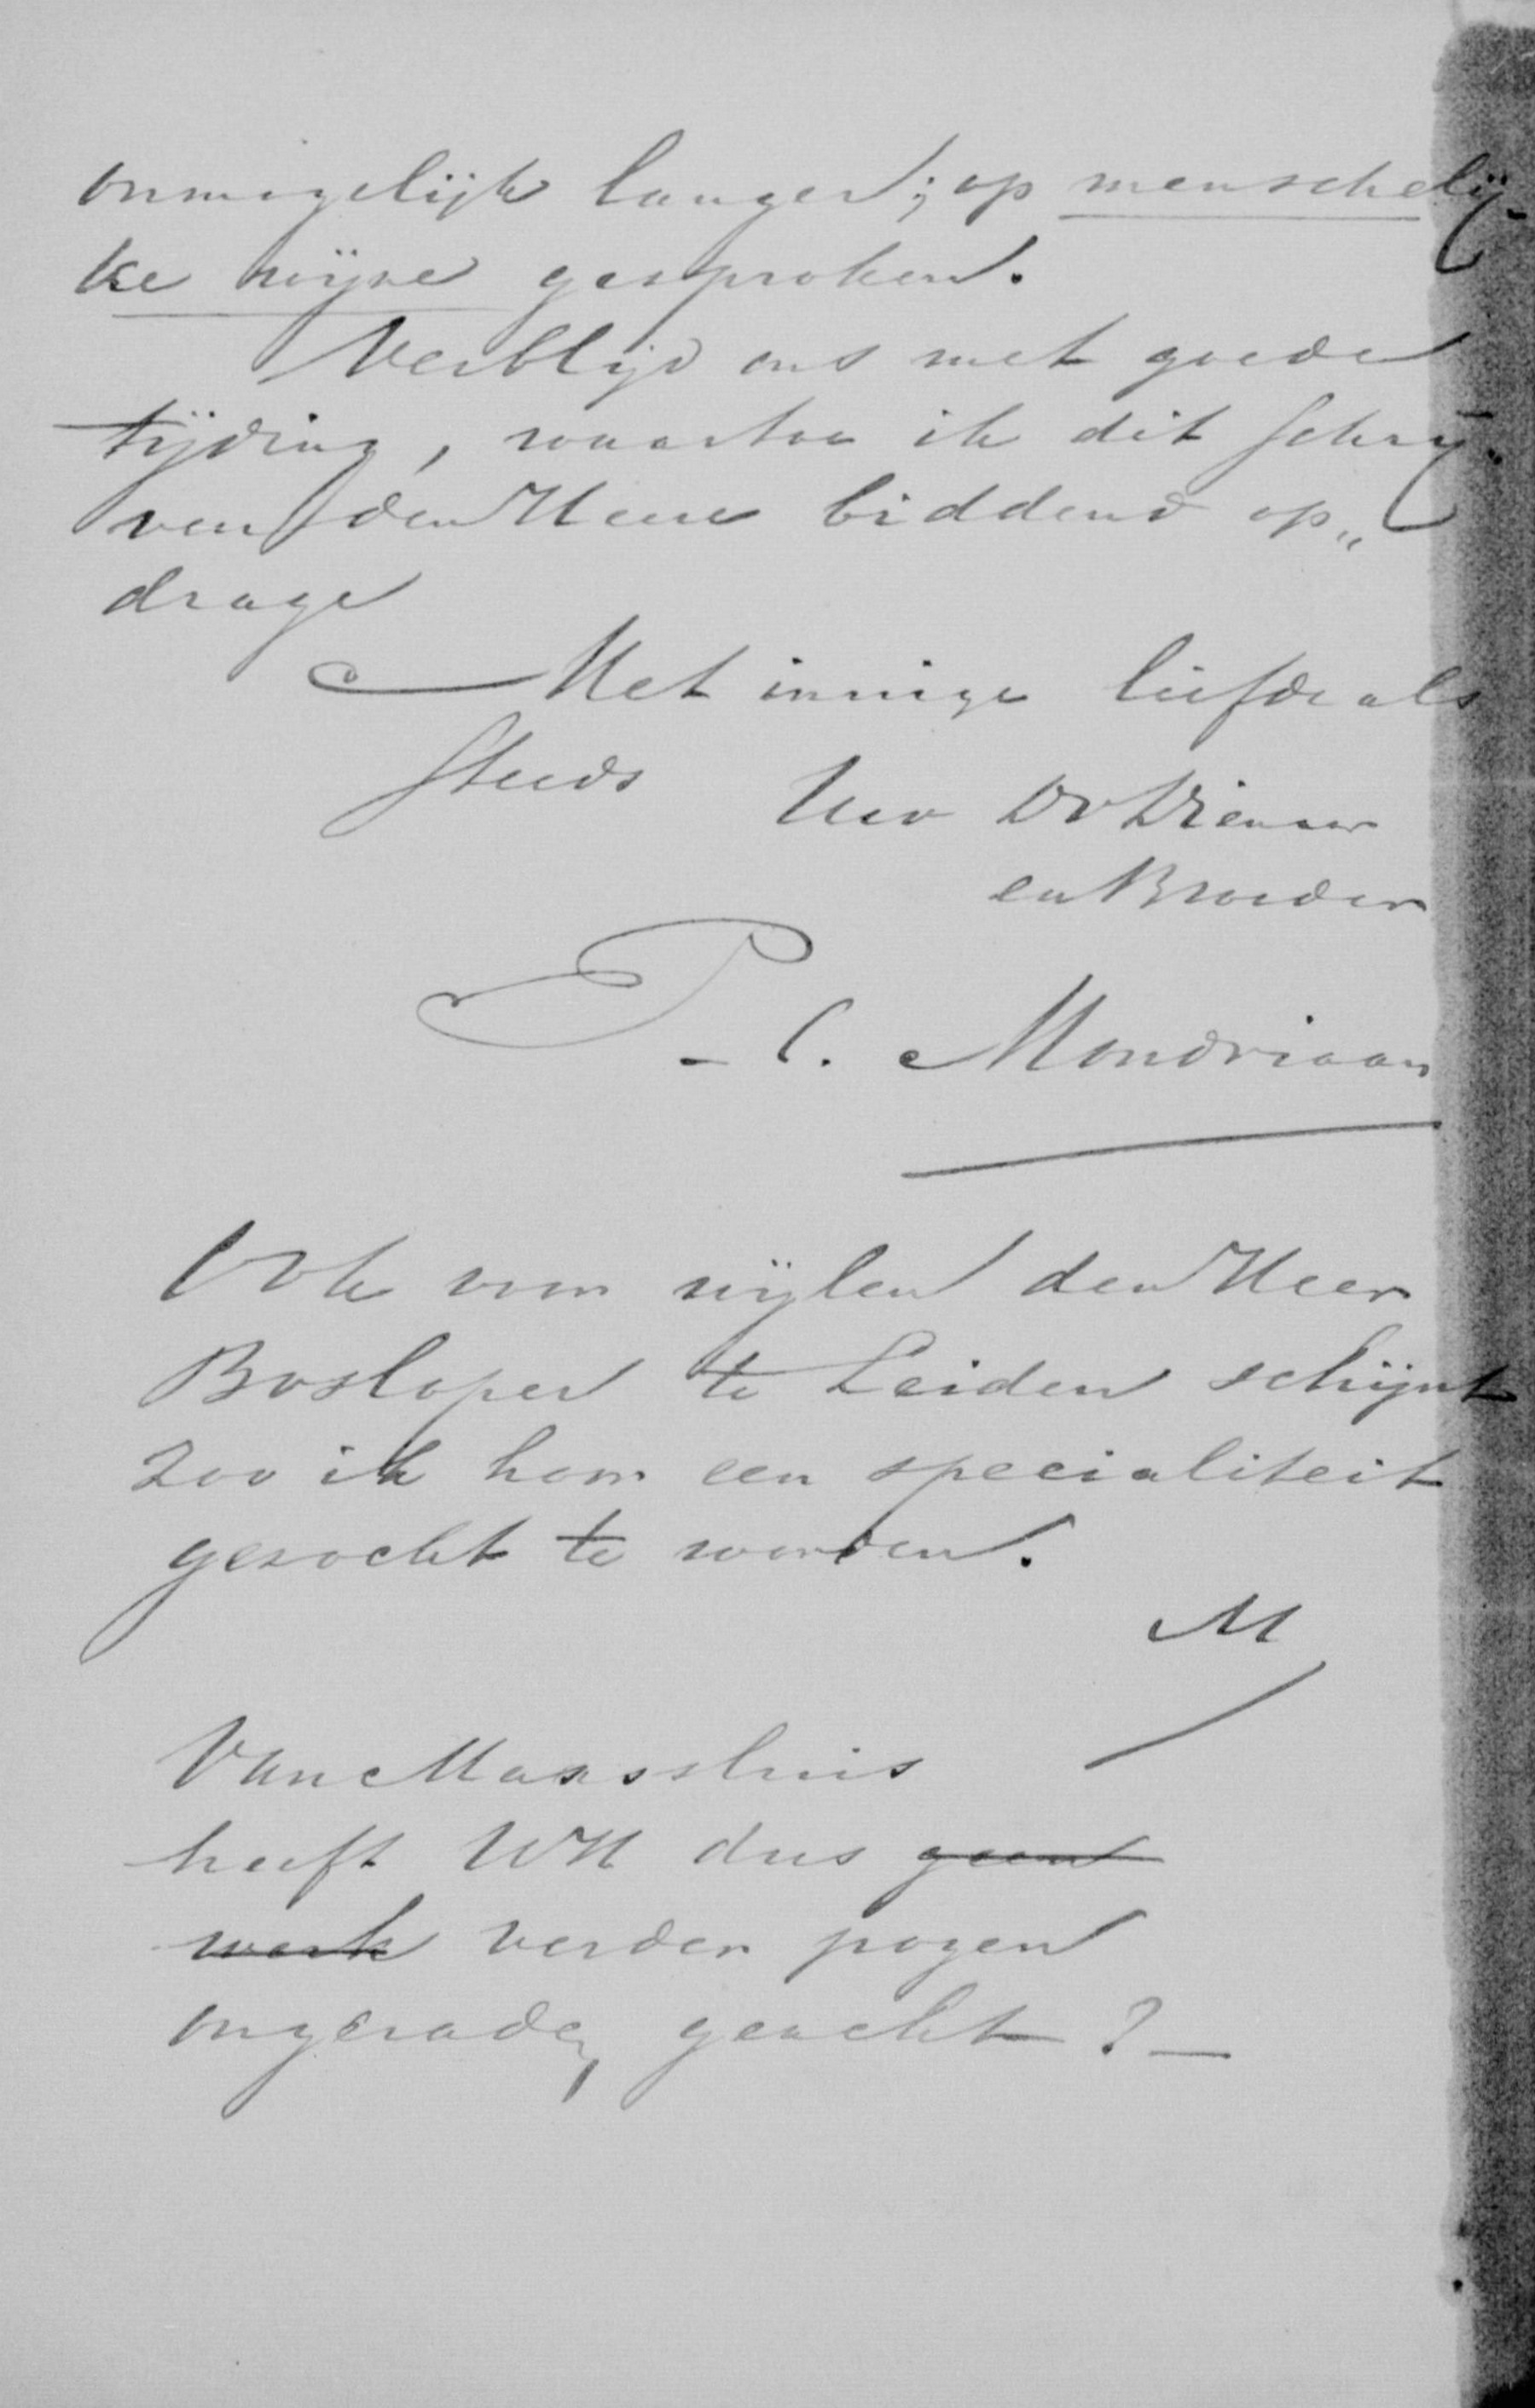 onmogelijk langer; op menschelij-
ke wijze gesproken.
Verblijd ons met goede
tijding, waartoe ik dit schrij„
ven den Heere biddend op„
drage
Met innige liefde als
steeds Uw DvDienaar
en Broeder
P. C. Mondriaan
Ook voor wijlen den Heer
Bosloper te Leiden schijnt
zoo ik hoor een specialiteit
gezocht te worden.
M
Van Maassluis
heeft UH dus geen
werk verder pogen
ongeraden geacht? —